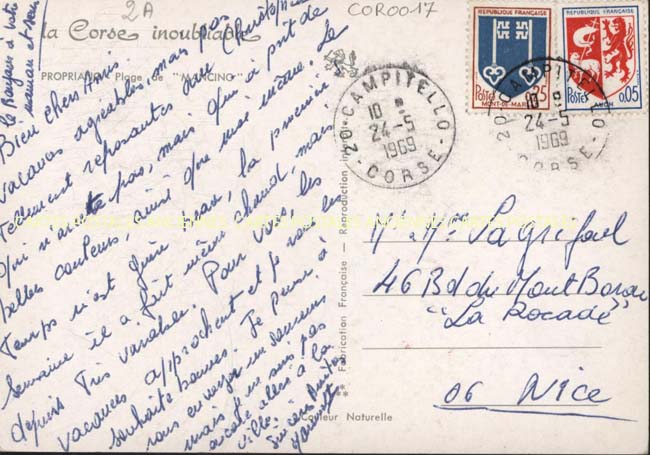 2A
COR0017
la Corse inoubliable
PROPRIANO - Plage de "MANCINO"
Bien chers Amis
Vacances agréables, mais pas
tellement reposantes avec Christophe
qui n'arrête pas, mais qui a pris de
belles couleurs, ainsi que moi même. Le
Temps n'est guère beau, la première
semaine il a fait même chaud, mais
depuis Très variable. Pour vous, les
vacances approchent et je vous les
souhaite bonnes. Je pense à
vous envoyer un
mais je ne suis pas
encore allée à la
ville.
Le Bonjour à votre
maman et
REPUBLIQUE FRANÇAISE
POSTES 0,25
MONT-DE-MARSAN
REPUBLIQUE FRANÇAISE
POSTES 0,05
AUCH
20 CAMPITELLO
10 H
24-5
1969
CORSE
20 CAMPITELLO
10 H
24-5
1969
CORSE
Fabrication Française — Reproduction interdite
Couleur Naturelle
46 Bd du Mont Boron
"La Rocade"
06 NICE